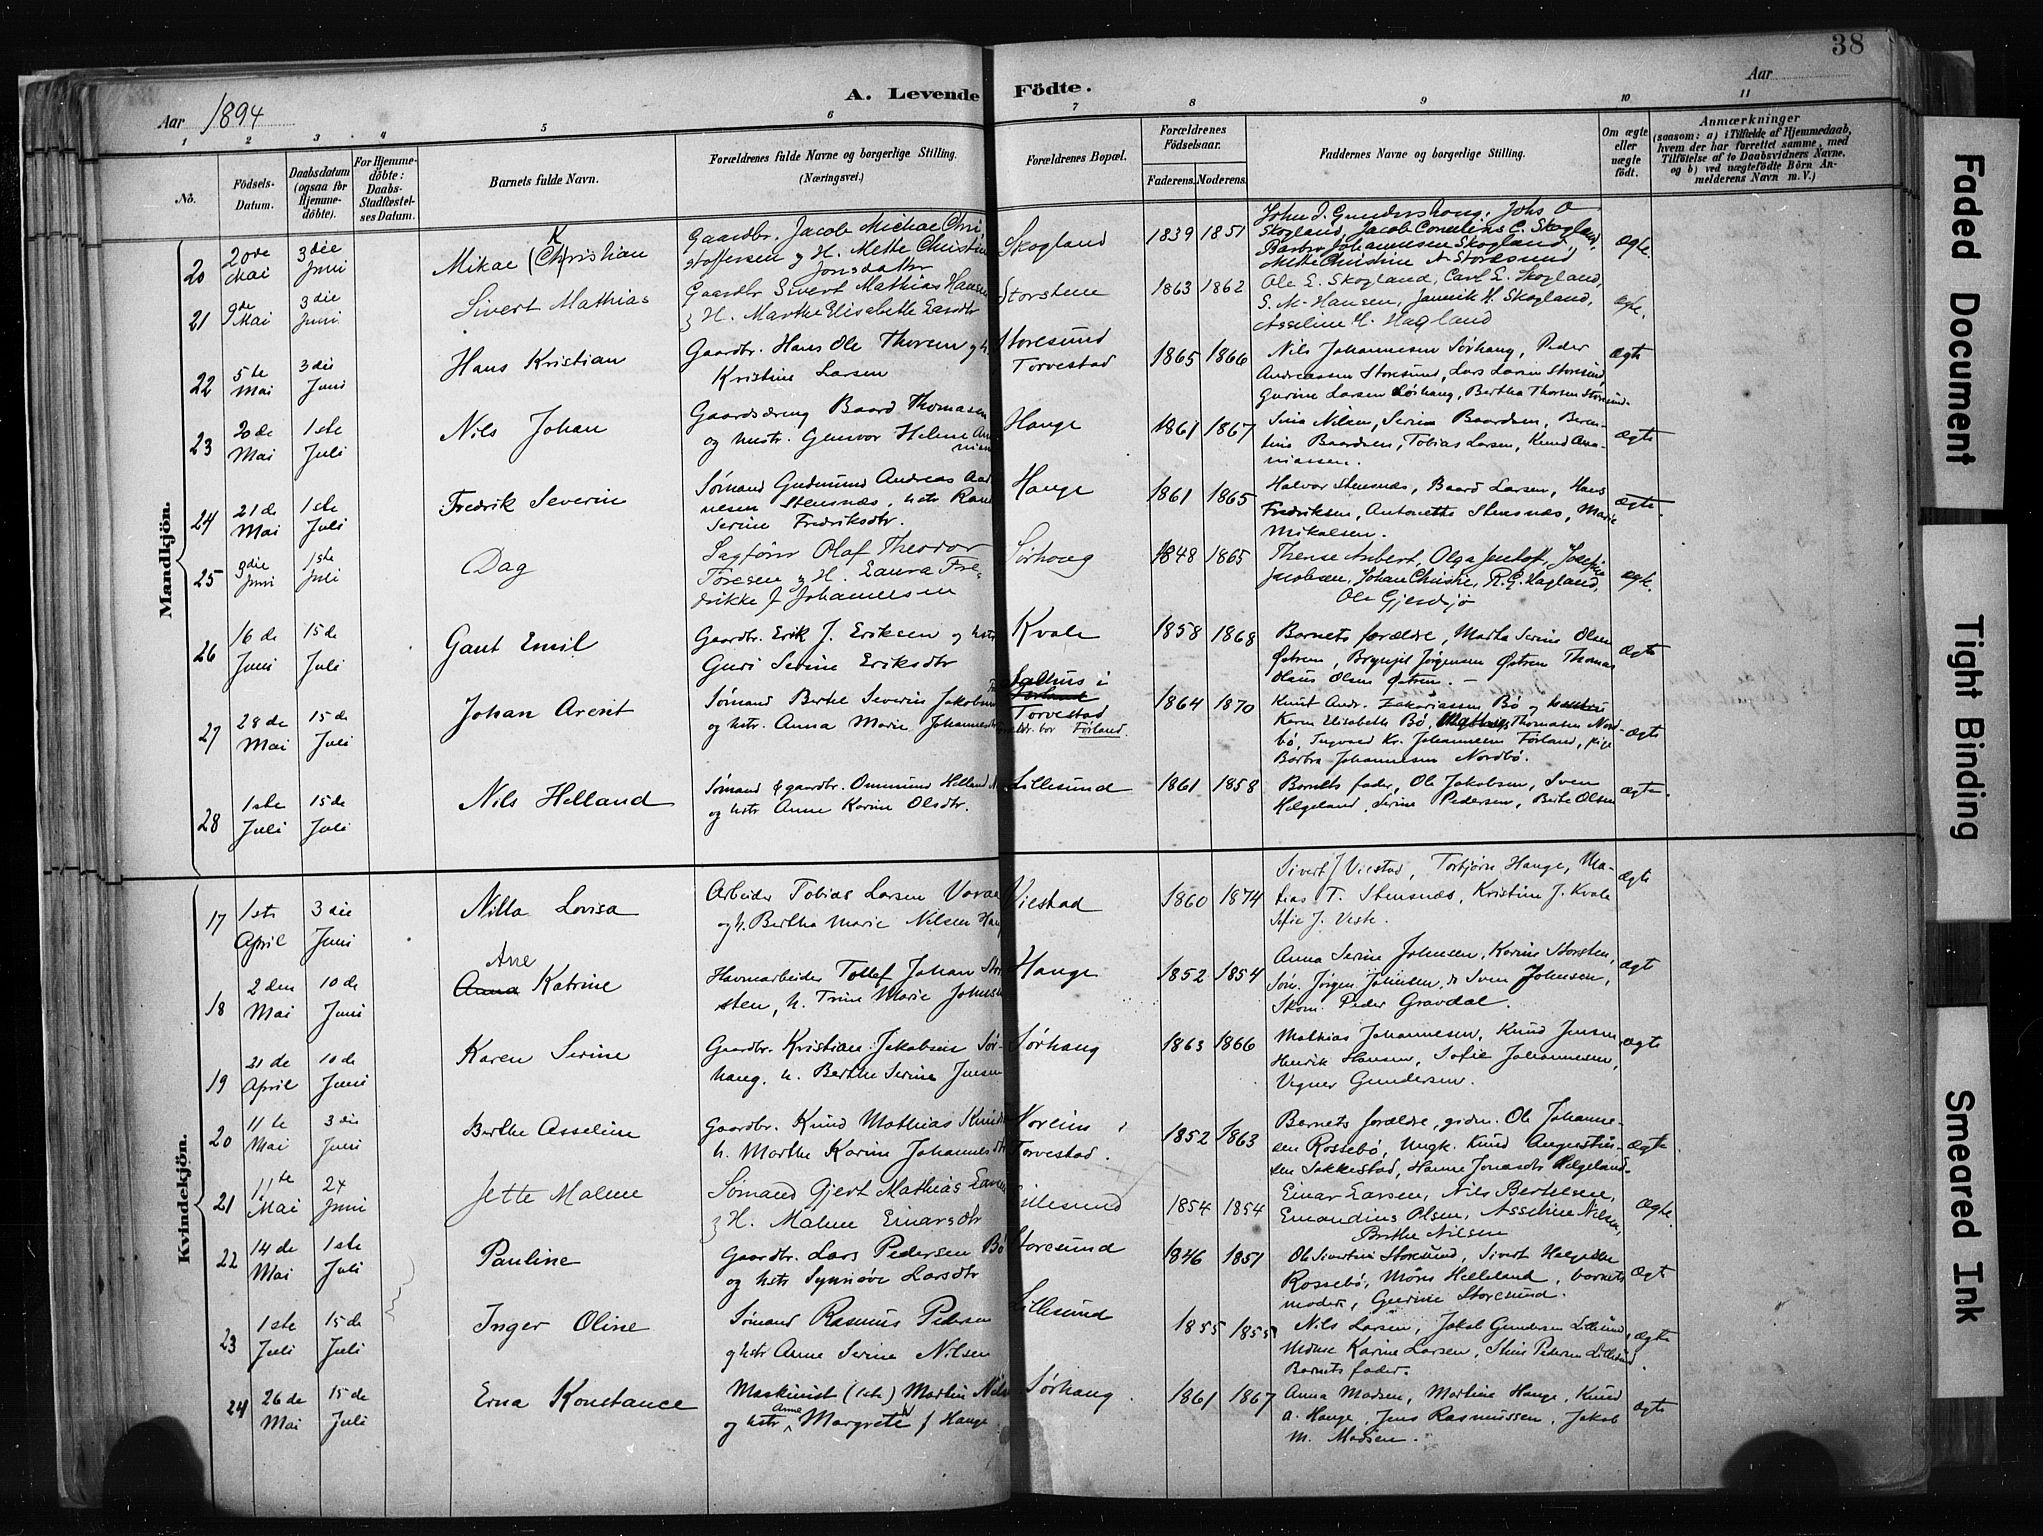 38
Aar 1894
A. Levende Födte.
Aar
1 2 3 4 5 6 7 8 9 10 11
No.
Födsels-Datum.
Daabsdatum (ogsaa för Hjemmedöbte).
For Hjemmedöbte: Daabs-Stadfæstelses Datum.
Barnets fulde Navn.
Forældrenes fulde Navne og borgerlige Stilling. (Næringsvei.)
Forældrenes Bopæl.
Forældrenes Födselsaar.
Faderens. Moderens.
Faddernes Navne og borgerlige Stilling.
Om ægte eller uægte födt.
Anmærkninger
(saasom: a) i Tilfælde af Hjemmedaab, hvem der har forrettet samme, med Tilföielse af to Daabsvidners Navne, og b) ved uægtefödte Börn Anmelderens Navn m. V.)
Mandkjön.
20 20de Mai 3die Juni Mikae (Christian K
Gaardbr. Jacob Michae Chri-
stoffersen og H. Mette Christine
Jonsdatter
Skogland 1839 1851
John J. Gundershaug, Johs O
Skogland, Jacob Cornelius C. Skogland,
Barbro Johannesen Skogland,
Mette Christine A Storesund
ægte.
21 9de Mai 3die Juni Sivert Mathias
Gaardbr Sivert Mathias Hansen
& H. Marthe Elisabeth Larsdtr
Storstene 1863 1862
Ole E. Skogland, Carl E. Skogland,
S. M. Hansen, Jannik H. Skogland,
Asseline H. Hagland
ægte.
22 5te Mai 3die Juni Hans Kristian
Gaardbr. Hans Ole Thorsen og h.
Kristine Larsen
Storesund Torvestad 1865 1866
Nils Johannesen Sørhaug, Peder
Andreassen Storesund, Lars Larsen Storesund,
Gurine Larsen Sørhaug, Bertha Thorsen Storesund.
ægte
23 20de Mai 1ste Juli Nils Johan
Baard Thomasen
og hustr. Gunvor Helene
Hauge 1861 1867
Nilsen, Serina Baardsen, Beren-
tine Baardsen, Tobias Larsen, Knud Ana-
niassen.
ægte
24 21de Mai 1ste Juli Fredrik Severin
Sømand Gudmund Andreas
Stensnæs hstr
Serine Fredriksdtr.
Hauge 1861 1865
Halvor Stensnæs, Baard Larsen, Hans
Fredriksen, Antonette Stensnæs, Marie
Mikalsen.
ægte.
25 3die Juni 1ste Juli Dag
Sagfører Olaf Theodor
Toresen & H. Laura Fre-
drikke f Johannesen
Sørhoug 1848 1865
Olga Jentoft, Josefine
Jacobsen, Johan Christie, R. G. Hagland,
Ole Gjerdsjø
ægte.
26 16de Juni 15de Juli Gaut Emil
Gaardbr. Erik J. Eriksen og hstr
Guri Serine Eriksdtr
Kvale 1858 1868
Barnets forældre, Marta Serine Olsen
Østrem, Brynjel Jørgensen Østrem Thomas
Olaus Olsen Østrem. -
ægte
27 28de Mai 15de Juli Johan Arent
Sømand Berthe Severin Jakobsen
og hstr. Anna Marie Johannesdtr
Salhus i Torvestad
bor Førland.
1864 1870
Knut Andr. Zakariassen Bø og
Karen Elisabeth Bø, Thomasen Nord-
bø, Ingvald Kr. Johannesen Førland, pige
Barbra Johannesen Nordbø.
ægte
28 1ste Juli 15de Juli Nils Helland
Sømand & gaardbr. Ommund Helland
og hstr Anne Karine Olsdtr.
Lillesund 1861 1858
Barnets fader, Ole Jakobsen, Sven
Helgeland, Serine Pedersen, Berte Olsen
ægte.
Kvindekjön.
17 1ste April 3die Juni Nilla Lovisa
Arbeider Tobias Larsen
og h. Bertha Marie Nilsen
Viestad 1860 1874
Sivert J Viestad, Torbjørn Hauge, Ma-
tias T. Stensnæs, Kristine J. Kvale
Sofie J. Veste.
ægte
18 2den Mai 10de Juni Ane Katrine
Havnarbeider Tollef Johan Stor-
sten, h. Trine Marie Johnsen
Hauge 1852 1854
Anna Serine Johnsen, Karine Storsten,
Søn. Jørgen Johnsen, & Sven Johnsen,
Skom. Peder Gravdal.
ægt
19 21de April 10de Juni Karen Serine
Gaardbr. Kristian Jakobsen Sør-
haug, h. Berthe Serine Jensen
Sørhaug 1863 1866
Mathias Johannesen, Knud Jensen
Henrik Hansen, Sofie Johannesen,
Vegner Gundersen.
ægte
20 11te Mai 3die Juni Berthe Asseline
Gaardbr. Knud Mathias Knudsen
h. Marthe Karine Johannesdtr
Noreim i Torvestad. 1852 1863
Barnets forældre, grdm. Ole Johanne-
sen Rossebø, Ungk. Knud Augustin-
sen Sakkestad, Hanne Jonasdtr Helgeland.
ægte.
21 11te Mai 24 Juni Jette Malene
Sømand Gjert Mathias Larsen
& H. Malene Einarsdtr
Lillesund 1854 1854
Einar Larsen, Nils Bertelsen,
Emandius Olsen, Asseline Nilsen,
Birthe Nilsen
ægte.
22 14de Mai 1ste Juli Pauline
Gaardbr. Lars Pedersen Bø
og hstr Synnøve Larsdtr
Storesund 1846 1851
Ole Sivertsen Storesund, Sivert Helgesen
Rossebø, Møns Helleland, barnets
moder, Gurine Storesund.
ægt
23 1ste Juli 15de Juli Inger Oline
Sømand Rasmus Pedersen
og hstr Anne Serine Nilsen
Lillesund 1855 1855
Nils Larsen, Jakob Gundersen Lillesund,
Karine Larsen, Stine Pedersen Lillesund.
Barnets fader.
ægte
24 26de Mai 15de Juli Erna Konstance
Maskinist (1ste) Martin Nils
og hstr Anne Margrete f Hauge
Sørhaug. 1861 1867
Anna Madsen, Martine Hauge, Knud
A. Hauge, Jens Rasmussen, Jakob
M. Madsen.
ægte
Faded Document
Tight Binding
Smeared Ink